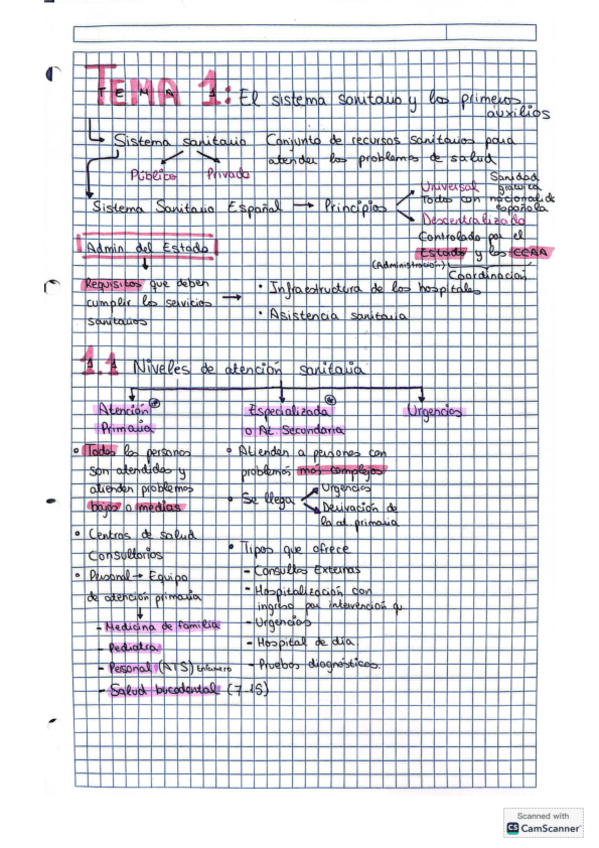 TEMA 1: El sistema sanitario y los primeros
auxilios
Sistema sanitario Conjunto de recursos sanitarios para
atender los problemas de salud
Público Privado
Sistema Sanitario Español → Principios
Universal Sanidad
gratuita
Todos con nacional. de
española
Descentralizado
Controlado por el
Estado y las CCAA
(Administración)
Coordinación
Admin. del Estado
Requisitos que deben
cumplir los servicios
sanitarios
→
• Infraestructura de los hospitales
• Asistencia sanitaria
1.1 Niveles de atención sanitaria
Atención
Primaria
• Todas las personas
son atendidas y
atienden problemas
bajos o medias
• Centros de salud
Consultorios
• Personal → Equipo
de atención primaria
- Medicina de familia
- Pediatra
- Personal (ATS) Enfermero
- Salud bucodental (7-15)
Especializada
o At. Secundaria
• Atienden a personas con
problemas más complejos
• Se llega
Urgencias
Derivación de
la at. primaria
• Tipos que ofrece
- Consultas Externas
- Hospitalización con
ingreso por intervención q
- Urgencias
- Hospital de día.
- Pruebas diagnósticas.
Urgencias
Scanned with
CS CamScanner